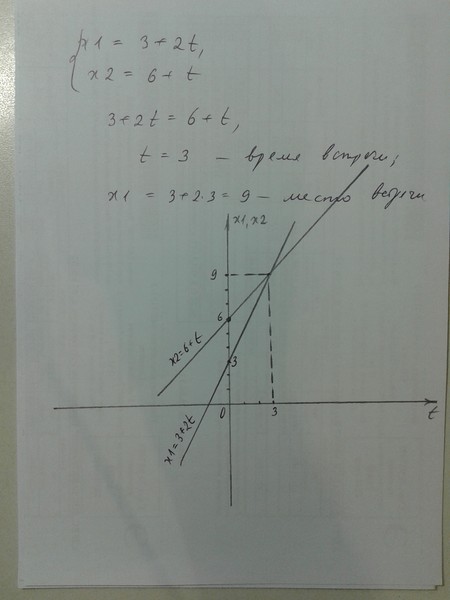 x1 = 3+2t,
x2 = 6+t
3+2t = 6+t,
t = 3 – время встречи;
x1 = 3+2·3 = 9 – место встречи
x1, x2
9
6
x2=6+t
3
0
3
t
x1=3+2t